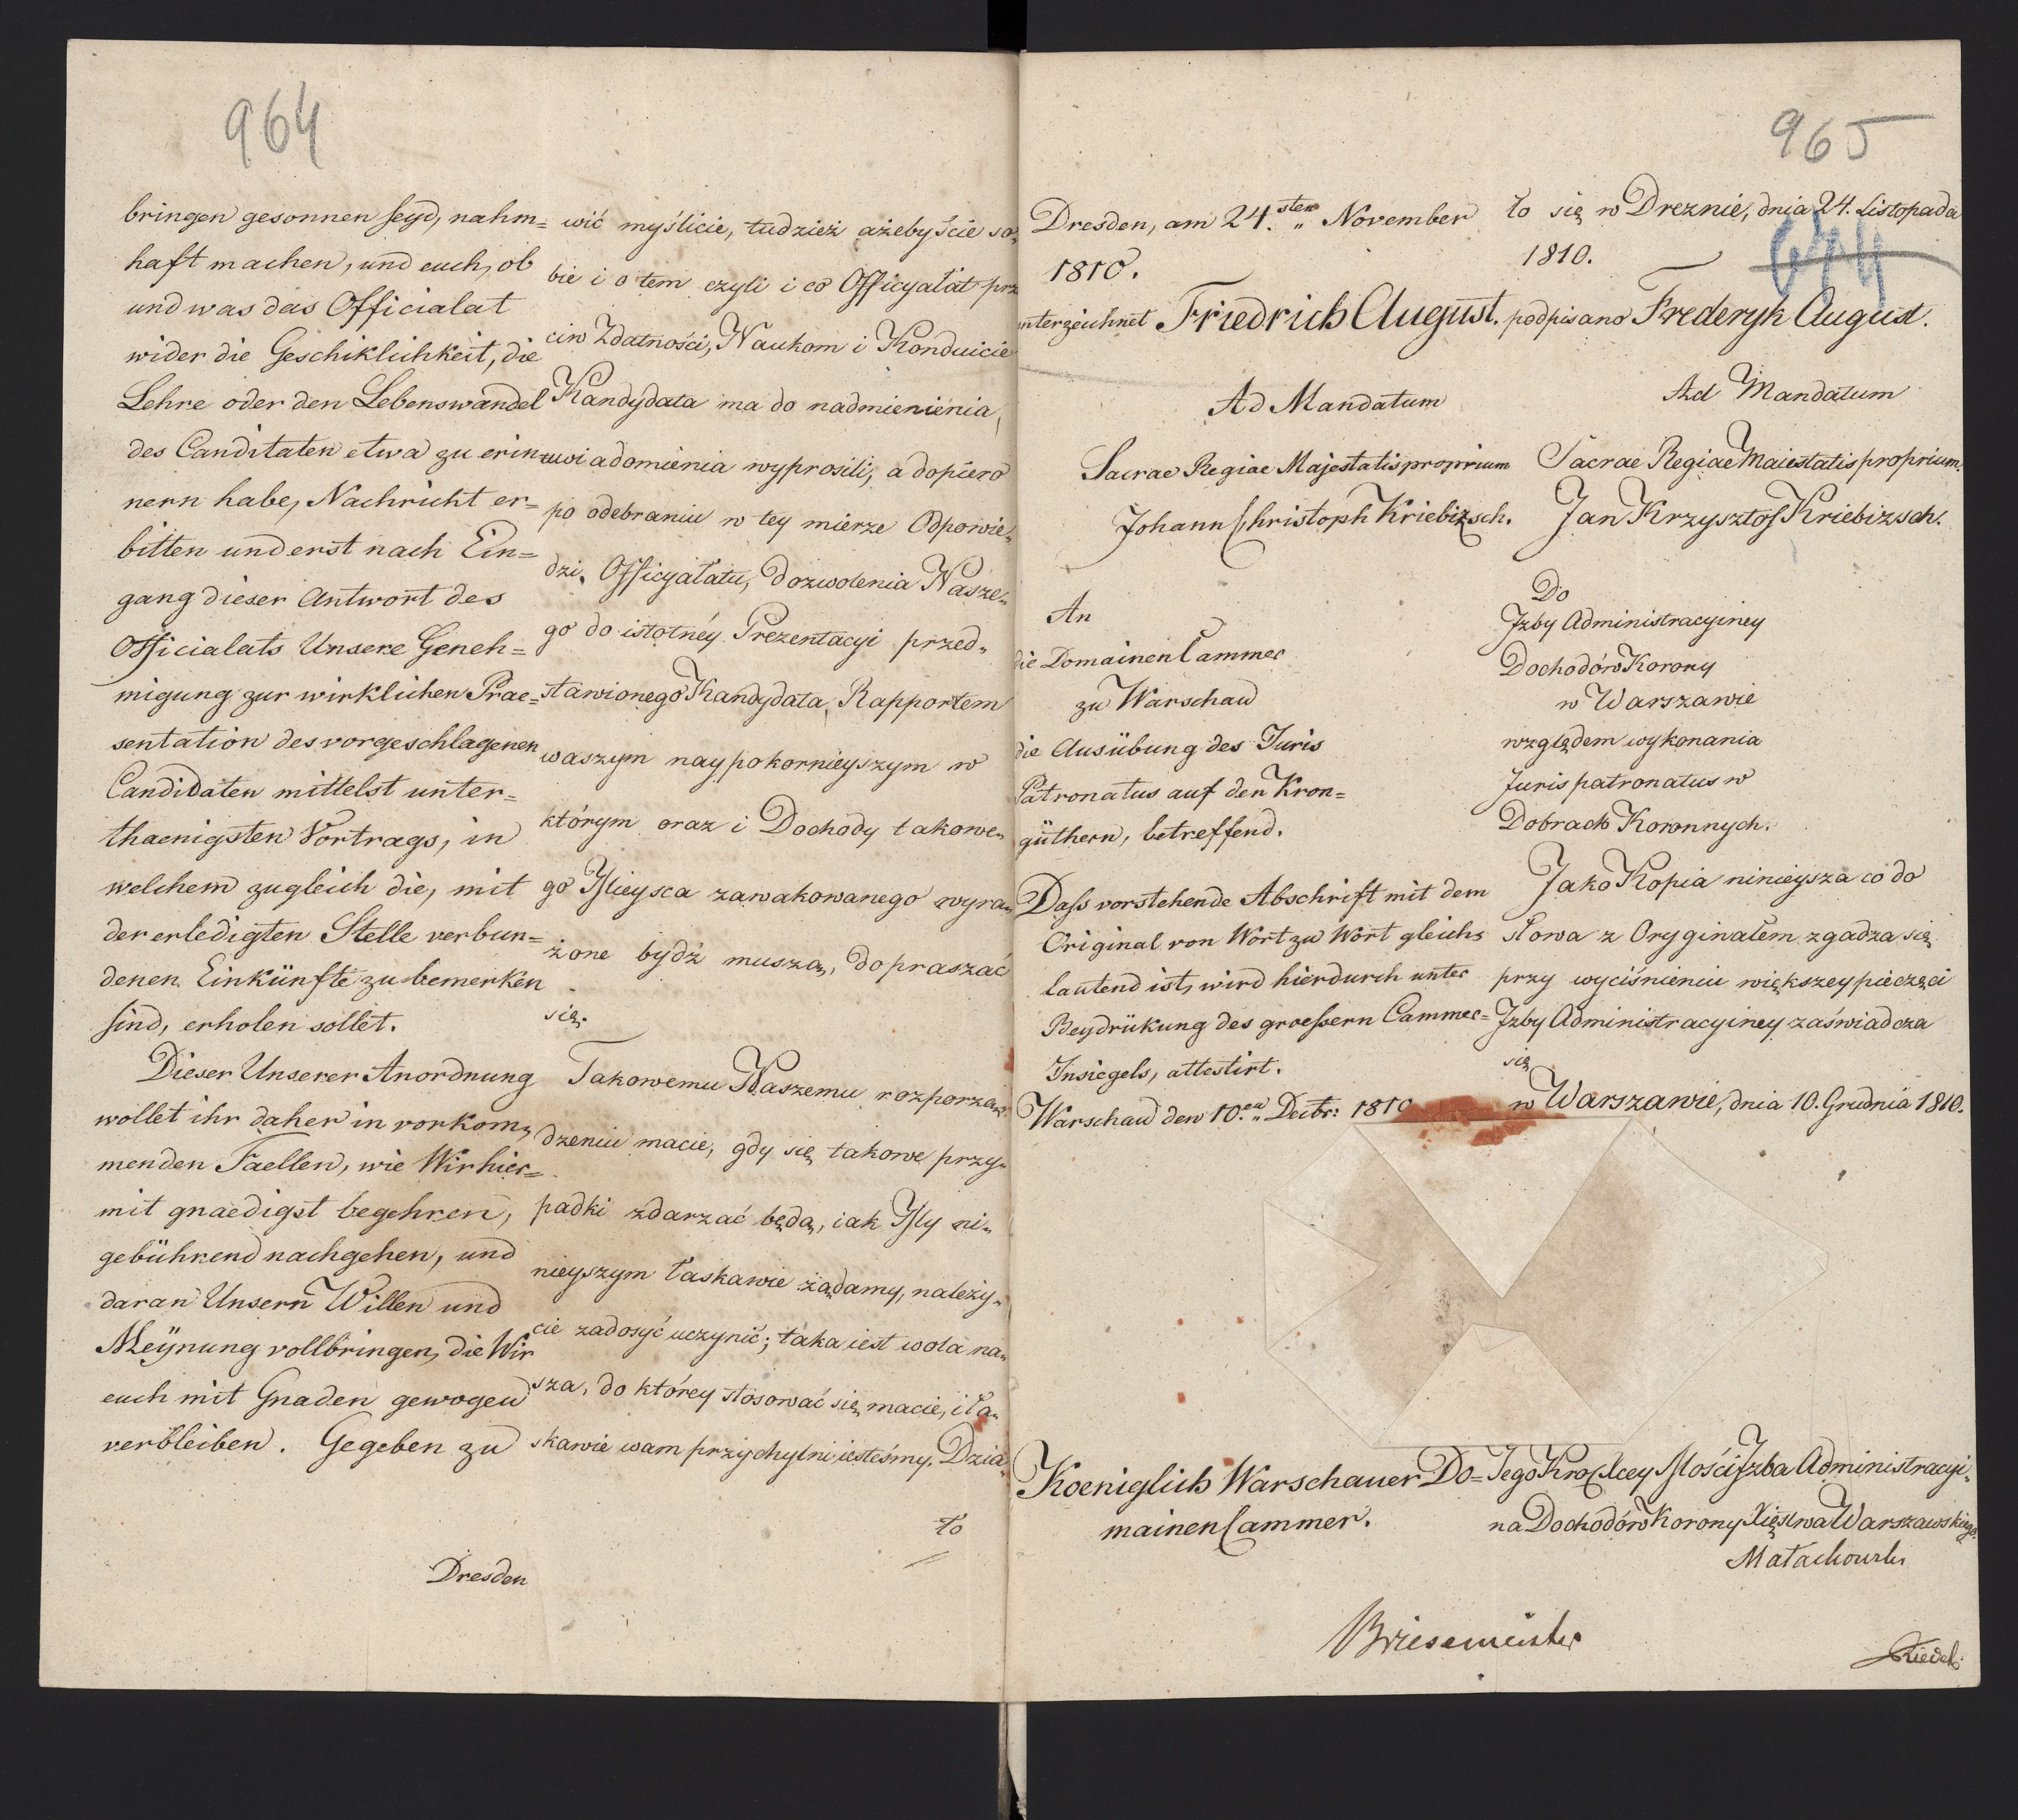 964
bringen gesonnen seyd, nahm=
haft machen, und euch, ob
und was das Officialat
wider die Geschiklichkeit, die
Lehre oder den Lebenswandel
des Canditaten etwa zu erin=
nern habe, Nachricht er=
bitten und erst nach Ein=
gang dieser Antwort des
Officialats Unsere Geneh=
migung zur wirklichen Prae=
sentation des vorgeschlagenen
Candidaten mittelst unter=
thaenigsten Vortrags, in
welchem zugleich die, mit
der erledigten Stelle verbun=
denen Einkünfte zu bemerken
sind, erholen sollet.
Dieser Unserer Anordnung
wollet ihr daher in vorkom„
menden Faellen, wie Wir hier=
mit gnaedigst begehren,
gebührend nachgehen, und
daran Unsern Willen und
Meÿnung vollbringen, die Wir
euch mit Gnaden gewogen
verbleiben. Gegeben zu
Dresden
wić myślicie, tudzież ażebyście so„
bie i o tem czyli i co Officyałat prze
ciw Zdatności, Naukom i Konduicie
Kandydata ma do nadmienienia,
uwiadomienia wyprosili, a dopiero
po odebraniu w tey mierze Odpowie„
dzi, Officyałatu, Dozwolenia Nasze„
go do istotnéy Prezentacyi przed„
stawionego Kandydata, Rapportem
waszym naypokornieyszym w
którym oraz i Dochody takowe„
go Mieysca zawakowanego wyra„
żone bydź muszą, dopraszać
się.
Takowemu Naszemu rozporzą„
dzeniu macie, gdy się takowe przy„
padki zdarzać będą, iak My ni„
nieyszym łaskawie żądamy, należy„
cie zadosyć uczynić; taka iest wola na„
sza, do którey stosować się macie, i ła„
skawie wam przychylni iesteśmy. Dzia
ło
965
Dresden, am 24.sten„ November
1810.
unterzeichnet Friedrich August.
Ad Mandatum
Sacrae Regiae Majestatis proprium
Johann Christoph Kriebizsch.
An
die Domainen Cammer
zu Warschau
die Ausübung des Juris
Patronatus auf den Kron=
güthern, betreffend.
Dass vorstehende Abschrift mit dem
Original von Wort zu Wort gleich„
lautend ist, wird hierdurch unter
Beydrükung des groessern Cammer=
Insiegels, attestirt.
Warschau den 10.en„ Decbr: 1810
Koeniglich Warschauer Do=
mainen Cammer.
Briesemeister
ło się w Dreznie, dnia 24. Listopada
1810.
644
podpisano Frederyk August.
Ad Mandatum
Sacrae Regiae Maiestatis proprium.
Jan Krzysztof Kriebizsch.
Do
Jzby Administracyiney
Dochodów Korony
w Warszawie
względem wykonania
Juris patronatus w
Dobrach Koronnych.
Jako Kopia ninieysza co do
słowa z Oryginałem zgadza się
przy wyciśnieniu większey pieczęci
Jzby Administracyiney zaświadcza
się
w Warszawie, dnia 10. Grudnia 1810.
Jego Krolewskiey Mości Jzba Administracyi„
na Dochodów Korony Xięstwa Warszawskiego.
Małachowski
Riedel